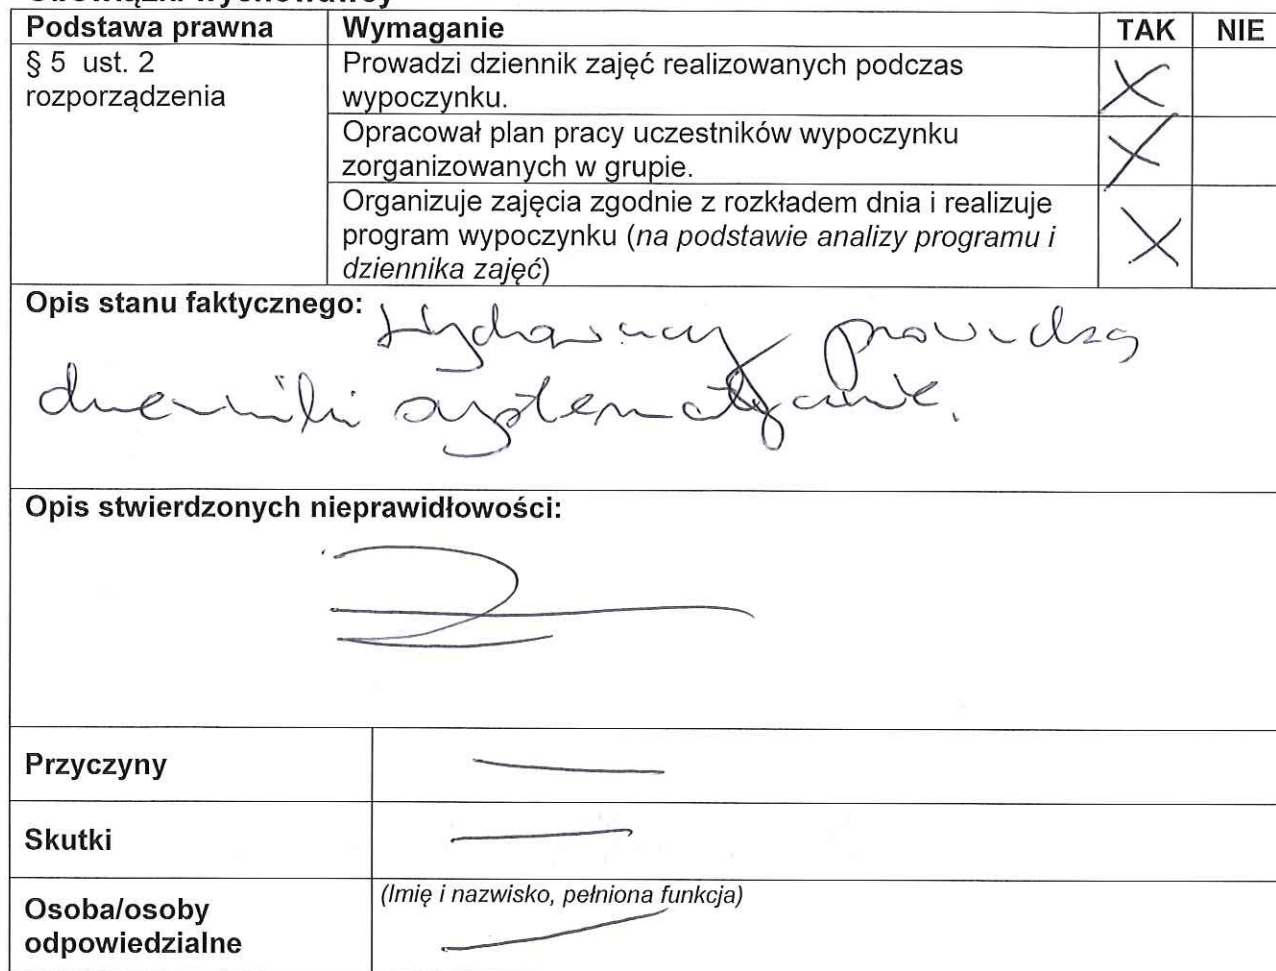 Obowiązki wychowawcy
Podstawa prawna Wymaganie TAK NIE
§ 5 ust. 2
rozporządzenia
Prowadzi dziennik zajęć realizowanych podczas
wypoczynku.
X
Opracował plan pracy uczestników wypoczynku
zorganizowanych w grupie.
X
Organizuje zajęcia zgodnie z rozkładem dnia i realizuje
program wypoczynku (na podstawie analizy programu i
dziennika zajęć)
X
Opis stanu faktycznego: Wychowawcy prowadzą
dzienniki systematycznie.
Opis stwierdzonych nieprawidłowości:
Przyczyny
Skutki
Osoba/osoby
odpowiedzialne
(Imię i nazwisko, pełniona funkcja)